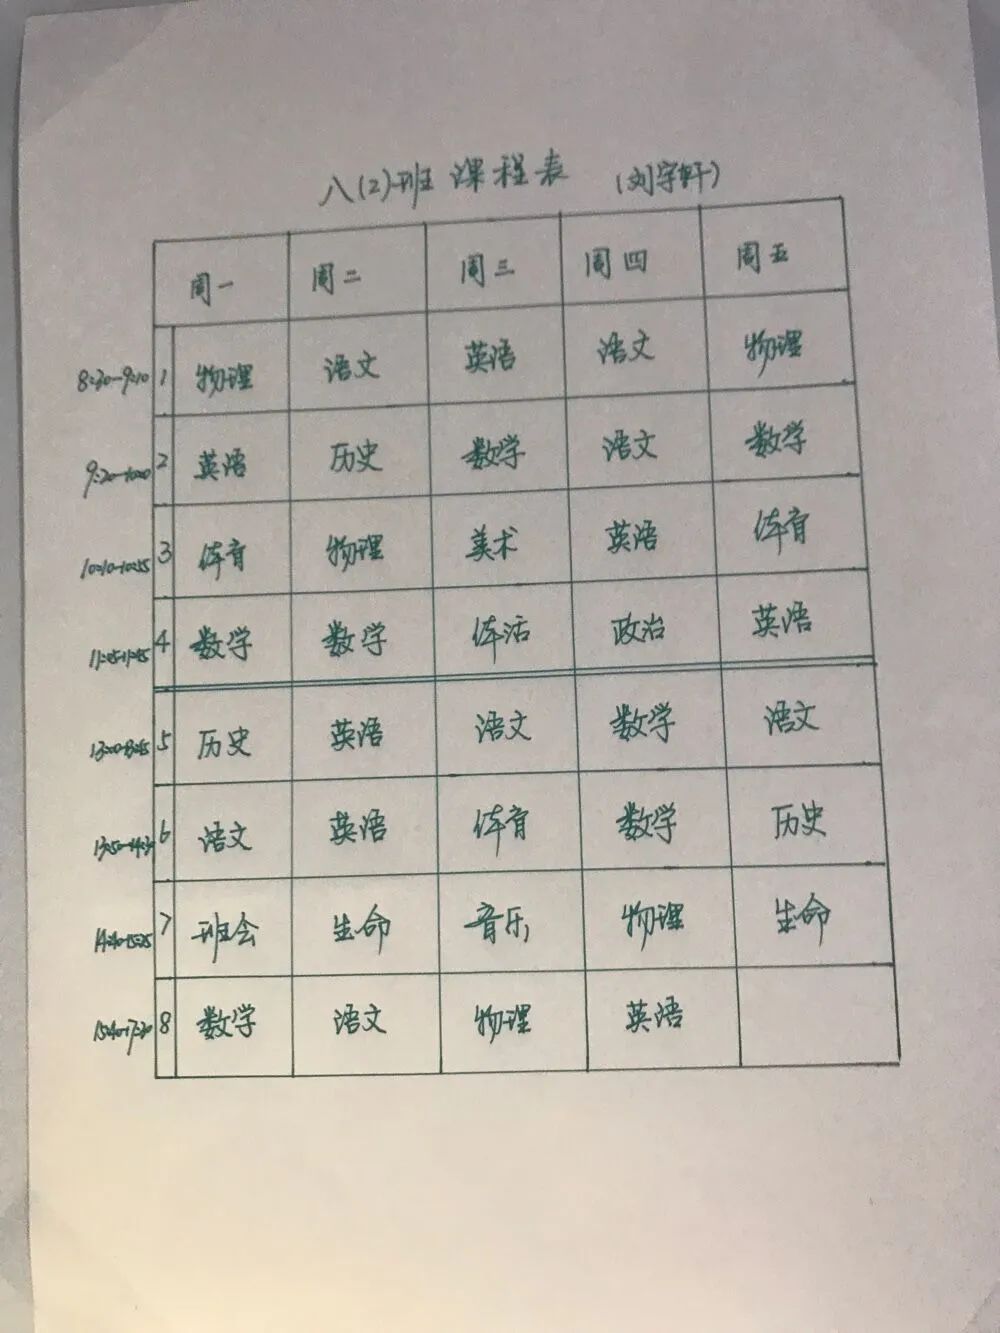 八(2)班 课程表 (刘宇轩)
周一 周二 周三 周四 周五
8:30-9:10 1 物理 语文 英语 语文 物理
9:20-10:00 2 英语 历史 数学 语文 数学
10:10-10:55 3 体育 物理 美术 英语 体育
11:05-11:45 4 数学 数学 体活 政治 英语
5 历史 英语 语文 数学 语文
6 语文 英语 体育 数学 历史
7 班会 生命 音乐 物理 生命
15:40-17:20 8 数学 语文 物理 英语